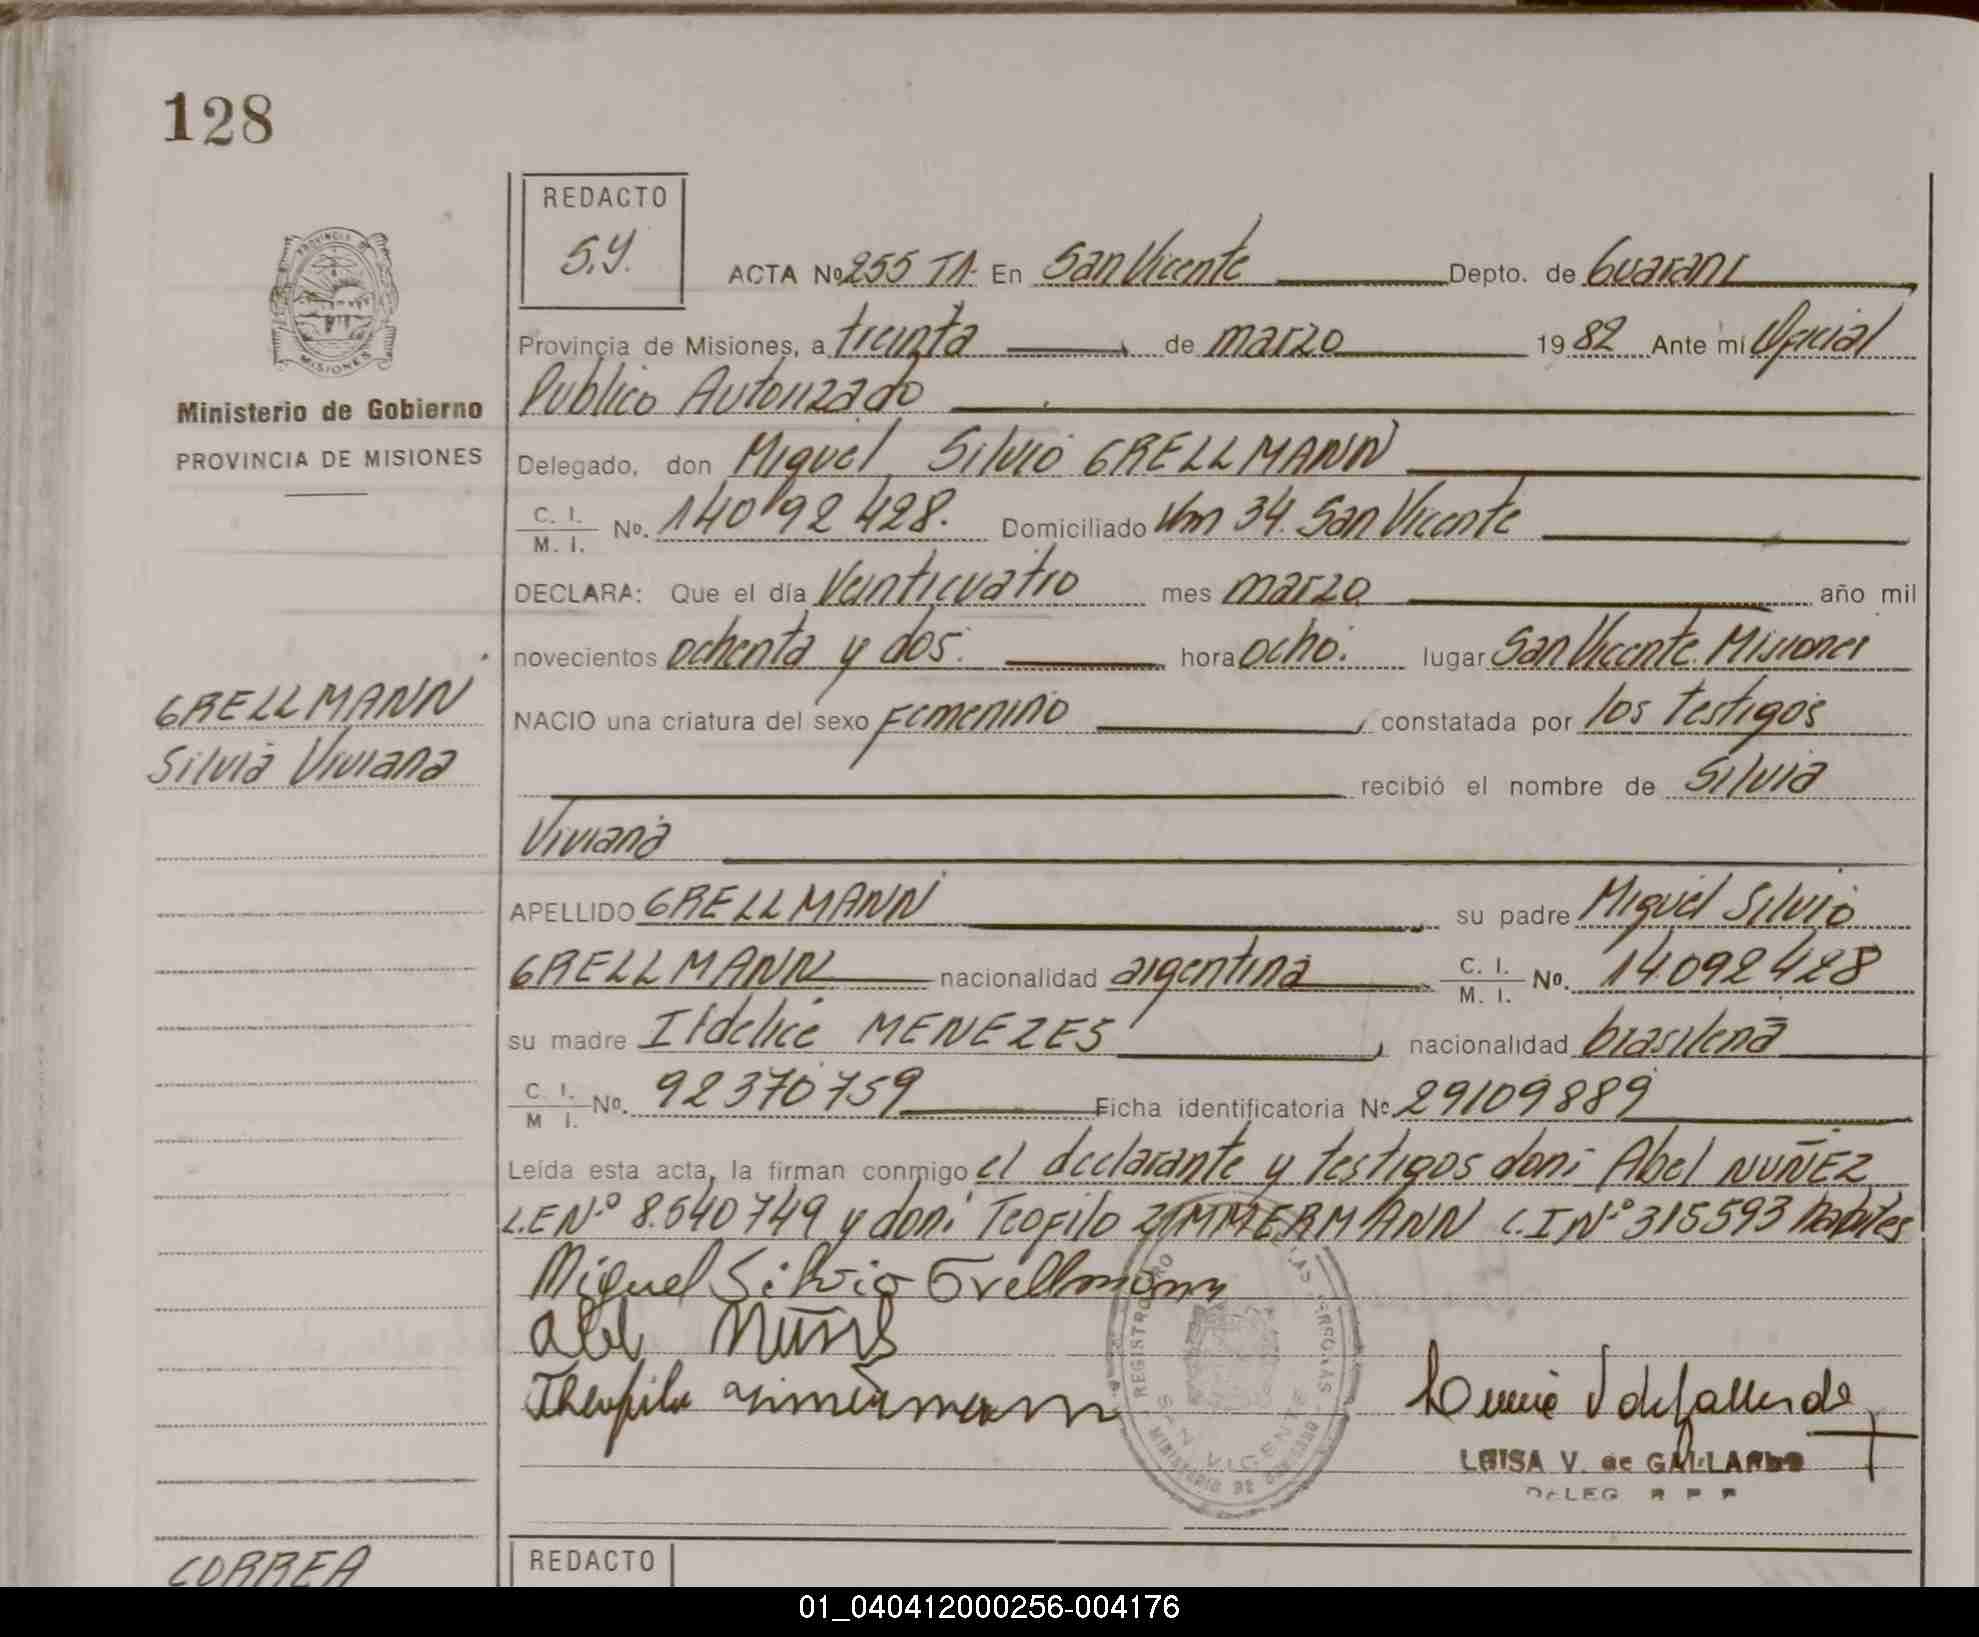 128
REDACTO
S.Y.
ACTA Nº 255 TA. En San Vicente Depto. de Guarani
Provincia de Misiones, a treinta de marzo 1982 Ante mi Oficial
Publico Autorizado
PROVINCIA DE MISIONES
Ministerio de Gobierno
PROVINCIA DE MISIONES
Delegado, don Miguel Silvio GRELLMANN
C. I. / M. I. No. 14092428. Domiciliado Km 34. San Vicente
DECLARA: Que el día Veinticuatro mes marzo año mil
novecientos ochenta y dos. hora ocho. lugar San Vicente. Misiones
GRELLMANN
Silvia Viviana
NACIO una criatura del sexo Femenino, constatada por los testigos
recibió el nombre de Silvia
Viviana
APELLIDO GRELLMANN su padre Miguel Silvio
GRELLMANN nacionalidad argentina C. I. / M. I. No. 14.092428
su madre Ildelice MENEZES, nacionalidad brasileña
C. I. / M I. No. 92370759 Ficha identificatoria Nº 29109889
Leída esta acta, la firman conmigo el declarante y testigos don: Abel NUÑEZ
L.E Nº 8.540749 y don: Teofilo ZIMMERMANN C.I Nº 315593 habiles
Miguel Silvio Grellmann
Abel
Theofilo
REGISTRO SAN VICENTE MINISTERIO DE GOBIERNO
LUISA V. de GALLARDO
DELEG R P P
CORREA
REDACTO
01_040412000256-004176